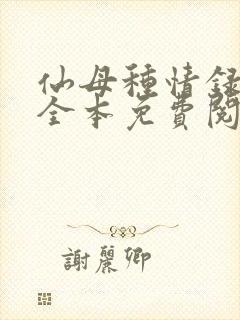 仙母種情録
全本免費閱
謝麗卿